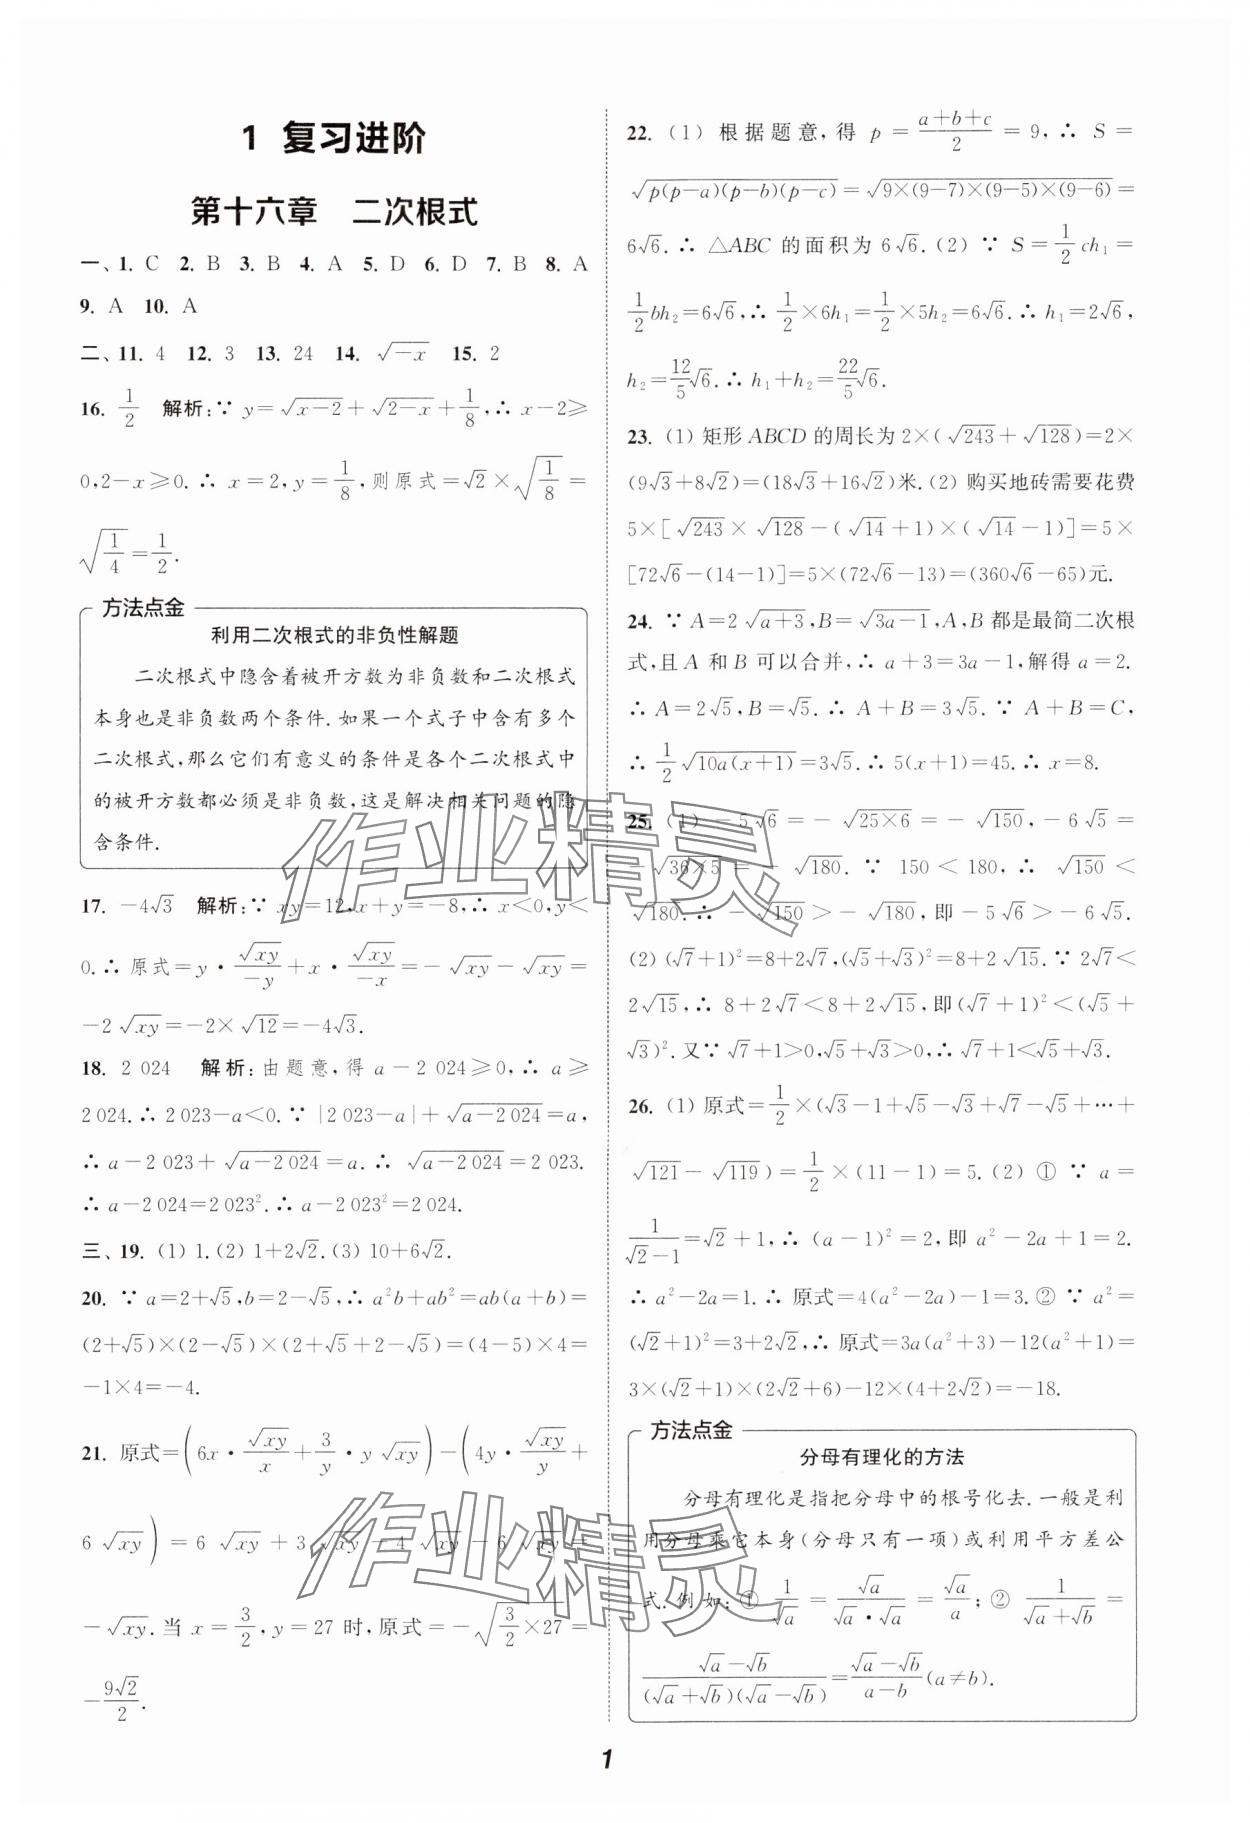 1 复习进阶
第十六章 二次根式
一、1. C 2. B 3. B 4. A 5. D 6. D 7. B 8. A
9. A 10. A
二、11. 4 12. 3 13. 24 14. √(−x) 15. 2
16. 1/2 解析:∵ y=√(x−2)+√(2−x)+1/8,∴ x−2≥
0,2−x≥0.∴ x=2,y=1/8,则原式=√2×√(1/8)=
√(1/4)=1/2.
方法点金
利用二次根式的非负性解题
二次根式中隐含着被开方数为非负数和二次根式
本身也是非负数两个条件.如果一个式子中含有多个
二次根式,那么它们有意义的条件是各个二次根式中
的被开方数都必须是非负数,这是解决相关问题的隐
含条件.
17. −4√3 解析:∵ xy=12,x+y=−8,∴ x<0,y<
0.∴ 原式=y·√(xy)/(−y)+x·√(xy)/(−x)=−√(xy)−√(xy)=
−2√(xy)=−2×√12=−4√3.
18. 2 024 解析:由题意,得 a−2 024≥0,∴ a≥
2 024.∴ 2 023−a<0.∵ |2 023−a|+√(a−2 024)=a,
∴ a−2 023+√(a−2 024)=a.∴ √(a−2 024)=2 023.
∴ a−2 024=2 023².∴ a−2 023²=2 024.
三、19. (1) 1.(2) 1+2√2.(3) 10+6√2.
20. ∵ a=2+√5,b=2−√5,∴ a²b+ab²=ab(a+b)=
(2+√5)×(2−√5)×(2+√5+2−√5)=(4−5)×4=
−1×4=−4.
21. 原式=(6x·√(xy)/x+3/y·y√(xy))−(4y·√(xy)/y+
6√(xy))=6√(xy)+3√(xy)−4√(xy)−6√(xy)=
−√(xy).当 x=3/2,y=27 时,原式=−√(3/2×27)=
−9√2/2.
22. (1) 根据题意,得 p=(a+b+c)/2=9,∴ S=
√(p(p−a)(p−b)(p−c))=√(9×(9−7)×(9−5)×(9−6))=
6√6.∴ △ABC 的面积为 6√6.(2) ∵ S=1/2ch₁=
1/2bh₂=6√6,∴ 1/2×6h₁=1/2×5h₂=6√6.∴ h₁=2√6,
h₂=12/5√6.∴ h₁+h₂=22/5√6.
23. (1) 矩形 ABCD 的周长为 2×(√243+√128)=2×
(9√3+8√2)=(18√3+16√2)米.(2) 购买地砖需要花费
5×[√243×√128−(√14+1)×(√14−1)]=5×
[72√6−(14−1)]=5×(72√6−13)=(360√6−65)元.
24. ∵ A=2√(a+3),B=√(3a−1),A,B 都是最简二次根
式,且 A 和 B 可以合并,∴ a+3=3a−1,解得 a=2.
∴ A=2√5,B=√5.∴ A+B=3√5.∵ A+B=C,
∴ 1/2√(10a(x+1))=3√5.∴ 5(x+1)=45.∴ x=8.
25. (1) −5√6=−√(25×6)=−√150,−6√5=
−√(36×5)=−√180.∵ 150<180,∴ √150<
√180.∴ −√150>−√180,即−5√6>−6√5.
(2) (√7+1)²=8+2√7,(√5+√3)²=8+2√15.∵ 2√7<
2√15,∴ 8+2√7<8+2√15,即(√7+1)²<(√5+
√3)².又∵ √7+1>0,√5+√3>0,∴ √7+1<√5+√3.
26. (1) 原式=1/2×(√3−1+√5−√3+√7−√5+…+
√121−√119)=1/2×(11−1)=5.(2) ① ∵ a=
1/(√2−1)=√2+1,∴ (a−1)²=2,即 a²−2a+1=2.
∴ a²−2a=1.∴ 原式=4(a²−2a)−1=3.② ∵ a²=
(√2+1)²=3+2√2,∴ 原式=3a(a²+3)−12(a²+1)=
3×(√2+1)×(2√2+6)−12×(4+2√2)=−18.
方法点金
分母有理化的方法
分母有理化是指把分母中的根号化去.一般是利
用分母乘它本身(分母只有一项)或利用平方差公
式.例如:① 1/√a=√a/(√a·√a)=√a/a;② 1/(√a+√b)=
(√a−√b)/((√a+√b)(√a−√b))=(√a−√b)/(a−b)(a≠b).
1
作业精灵
作业精灵